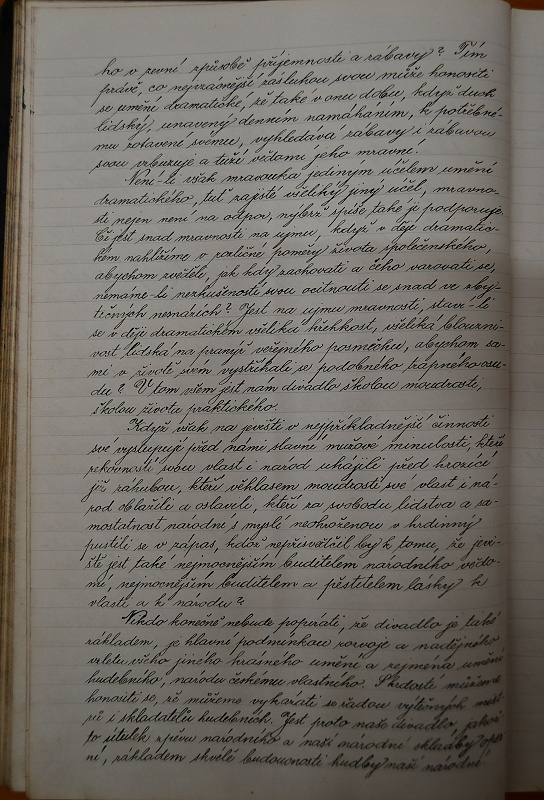 ho v zevní způsobě příjemnosti a zábavy? Tím
právě, co nejvzácnější zásluhou svou může honositi
se umění dramatické, že také v onu dobu, když duch
lidský, unavený denním namáháním, k potřebné-
mu zotavení svému, vyhledává zábavy i zábavou
svou vzbuzuje a tuží vědomí jeho mravní.
Není-li však mravouka jediným účelem umění
dramatického, tuť zajisté všeliký jiný účel, mravno-
sti nejen není na odpor, nýbrž spíše také ji podporuje.
Či jest snad mravnosti na ujmu, když v ději dramatic-
kém nahlížíme v rozličné poměry života společenského,
abychom zvěděli, jak kdy zachovati a čeho varovati se,
nemáme-li nezkušeností svou ocitnouti se snad ve zby-
tečných nesnázích? Jest na ujmu mravnosti, staví-li
se v ději dramatickém všeliká křehkost, všeliká blouzni-
vost lidská na pranýř veřejného posměchu, abychom sa-
mi v životě svém vystříhali se podobného trapného osu-
du? V tom všem jest nám divadlo školou moudrosti,
školou života praktického.
Když však na jevišti v nejpříkladnější činnosti
své vystupují před námi slavní mužové minulosti, kteří
rekovností svou vlast i národ uhájili před hrozící
již záhubou, kteří věhlasem moudrosti své vlast i ná-
rod oblažili a oslavili, kteří za svobodu lidstva a sa-
mostatnost národní s myslí neohroženou v hrdinný
pustili se v zápas, kdož nepřisvědčil by k tomu, že jevi-
ště jest také nejmocnějším buditelem národního vědo-
mí, nejmocnějším buditelem a pěstitelem lásky k
vlasti a k národu?
Nikdo konečně nebude popírati, že divadlo je také
základem, je hlavní podmínkou rozvoje a nadějného
vzletu všeho jiného krásného umění a zejména umění
hudebního, národu českému vlastního. S hrdostí můžeme
honositi se, že můžeme vykázati se řadou výtečných mist-
rů i skladatelů hudebních. Jest proto naše divadlo, jakož
to útulek zpěvu národního a naší národní skladby oper-
ní, základem skvělé budoucnosti hudby naší národní.